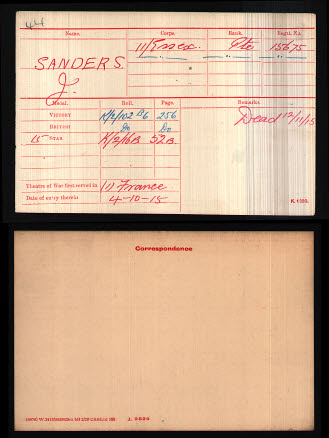 44
Name. Corps. Rank. Regtl. No.
11/Essex. Pte 15675
SANDERS.
J.
Medal. Roll. Page. Remarks.
VICTORY K/2/102 B6 256 Dead 12/11/15
BRITISH Do Do
15 STAR K/2/6B 52B.
Theatre of War first served in (1) France
Date of entry therein 4-10-15
K. 1380.
Correspondence